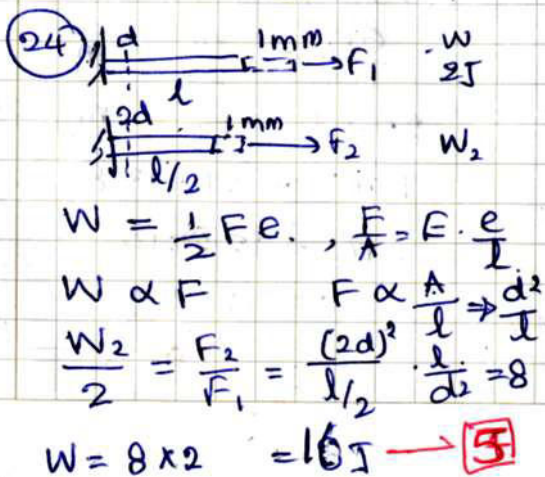 24 d 1mm F₁ W
l 2J
2d 1mm F₂ W₂
l/2
W = 1/2 F e. , F/A = E · e/l
W ∝ F F ∝ A/l ⇒ d²/l
W₂/2 = F₂/F₁ = (2d)²/(l/2) · l/d² = 8
W = 8 × 2 = 16J → 5